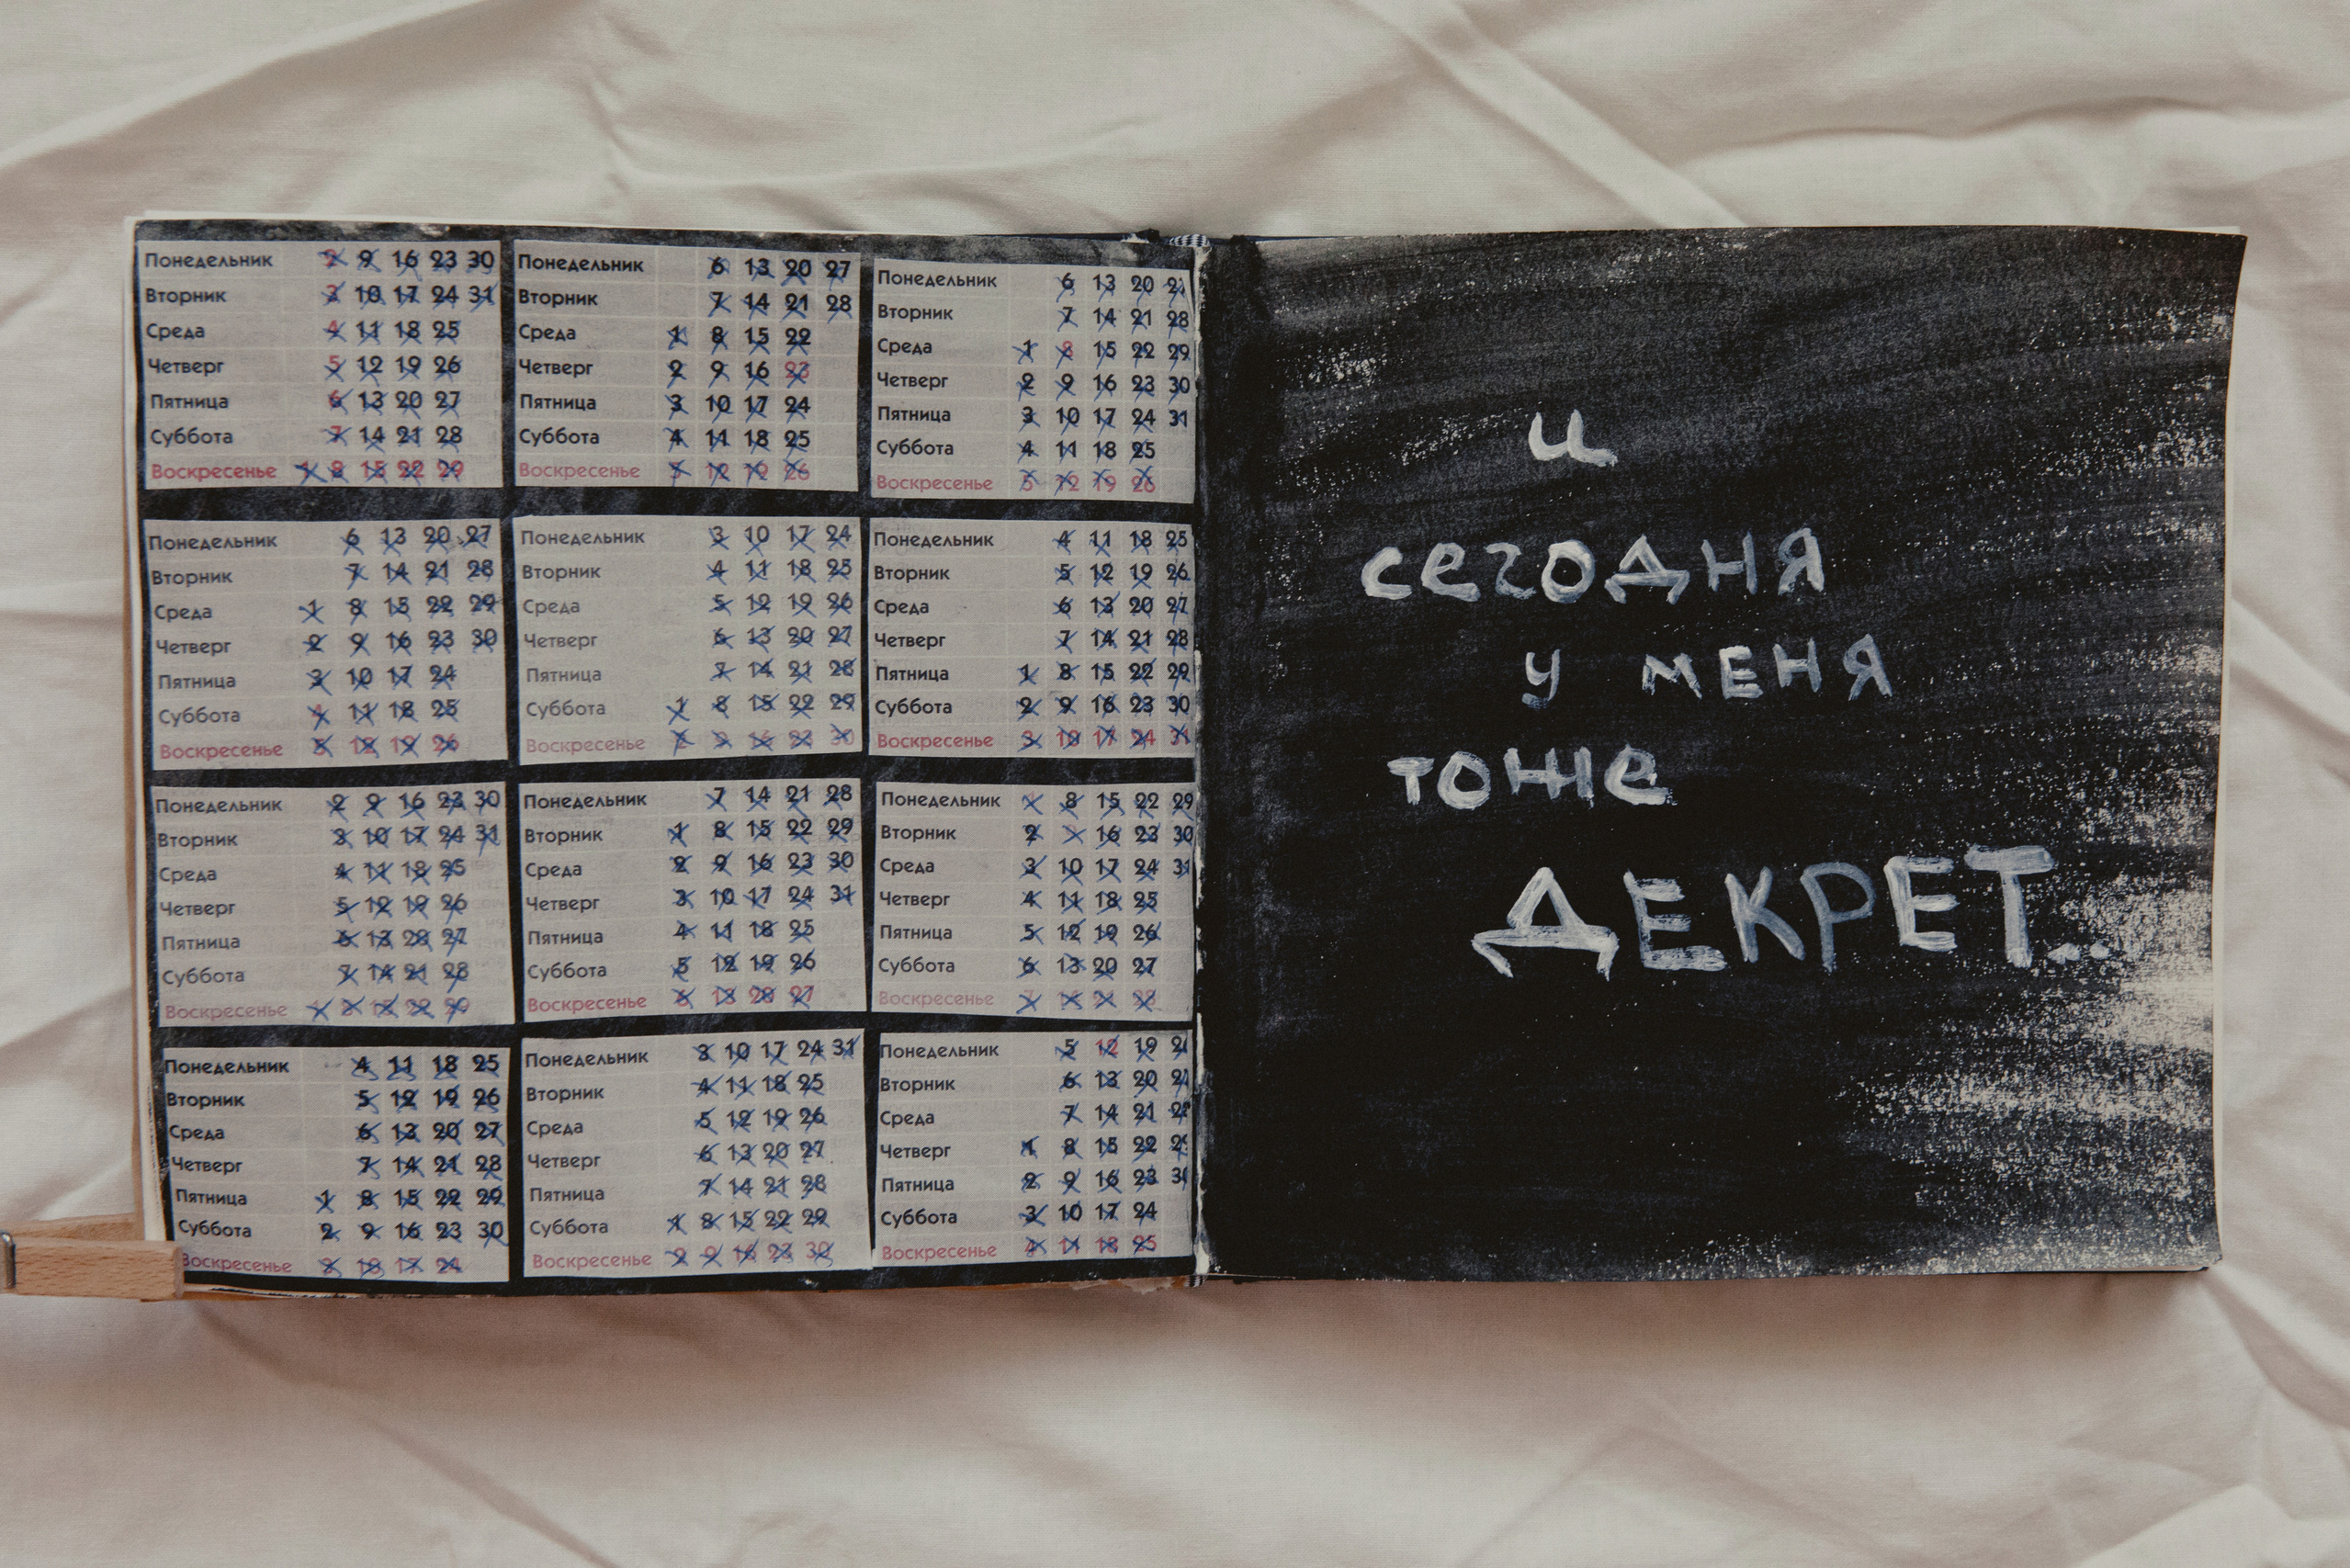 Понедельник 2 9 16 23 30
Вторник 3 10 17 24 31
Среда 4 11 18 25
Четверг 5 12 19 26
Пятница 6 13 20 27
Суббота 7 14 21 28
Воскресенье 1 8 15 22 29
Понедельник 6 13 20 27
Вторник 7 14 21 28
Среда 1 8 15 22
Четверг 2 9 16 23
Пятница 3 10 17 24
Суббота 4 11 18 25
Воскресенье 5 12 19 26
Понедельник 6 13 20 27
Вторник 7 14 21 28
Среда 1 8 15 22 29
Четверг 2 9 16 23 30
Пятница 3 10 17 24 31
Суббота 4 11 18 25
Воскресенье 5 12 19 26
Понедельник 6 13 20 27
Вторник 7 14 21 28
Среда 1 8 15 22 29
Четверг 2 9 16 23 30
Пятница 3 10 17 24
Суббота 4 11 18 25
Воскресенье 5 12 19 26
Понедельник 3 10 17 24
Вторник 4 11 18 25
Среда 5 12 19 26
Четверг 6 13 20 27
Пятница 7 14 21 28
Суббота 1 8 15 22 29
Воскресенье 2 9 16 23 30
Понедельник 4 11 18 25
Вторник 5 12 19 26
Среда 6 13 20 27
Четверг 7 14 21 28
Пятница 1 8 15 22 29
Суббота 2 9 16 23 30
Воскресенье 3 10 17 24 31
Понедельник 2 9 16 23 30
Вторник 3 10 17 24 31
Среда 4 11 18 25
Четверг 5 12 19 26
Пятница 6 13 20 27
Суббота 7 14 21 28
Воскресенье 1 8 15 22 29
Понедельник 7 14 21 28
Вторник 1 8 15 22 29
Среда 2 9 16 23 30
Четверг 3 10 17 24 31
Пятница 4 11 18 25
Суббота 5 12 19 26
Воскресенье 6 13 20 27
Понедельник 1 8 15 22 29
Вторник 2 9 16 23 30
Среда 3 10 17 24 31
Четверг 4 11 18 25
Пятница 5 12 19 26
Суббота 6 13 20 27
Воскресенье 7 14 21 28
Понедельник 4 11 18 25
Вторник 5 12 19 26
Среда 6 13 20 27
Четверг 7 14 21 28
Пятница 1 8 15 22 29
Суббота 2 9 16 23 30
Воскресенье 3 10 17 24
Понедельник 3 10 17 24 31
Вторник 4 11 18 25
Среда 5 12 19 26
Четверг 6 13 20 27
Пятница 7 14 21 28
Суббота 1 8 15 22 29
Воскресенье 2 9 16 23 30
Понедельник 5 12 19 26
Вторник 6 13 20 27
Среда 7 14 21 28
Четверг 1 8 15 22 29
Пятница 2 9 16 23 30
Суббота 3 10 17 24
Воскресенье 4 11 18 25
и
сегодня
у меня
тоже
ДЕКРЕТ...